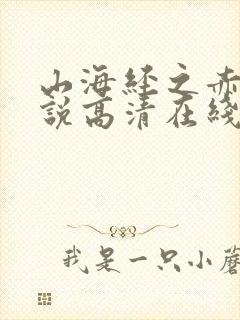 山海经之赤
說高清在綫
我是一只小蘑